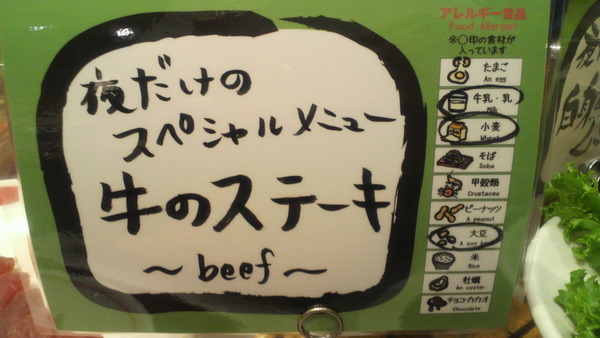 夜だけの
スペシャルメニュー
牛のステーキ
～beef～
アレルギー食品
Food Allergen
※○印の食材が
入っています
たまご
An egg
牛乳・乳
Milk
小麦
Wheat
そば
Soba
甲殻類
Crustacea
ピーナッツ
A peanut
大豆
A soy bean
米
Rice
牡蠣
An oyster
チョコ・カカオ
Chocolate